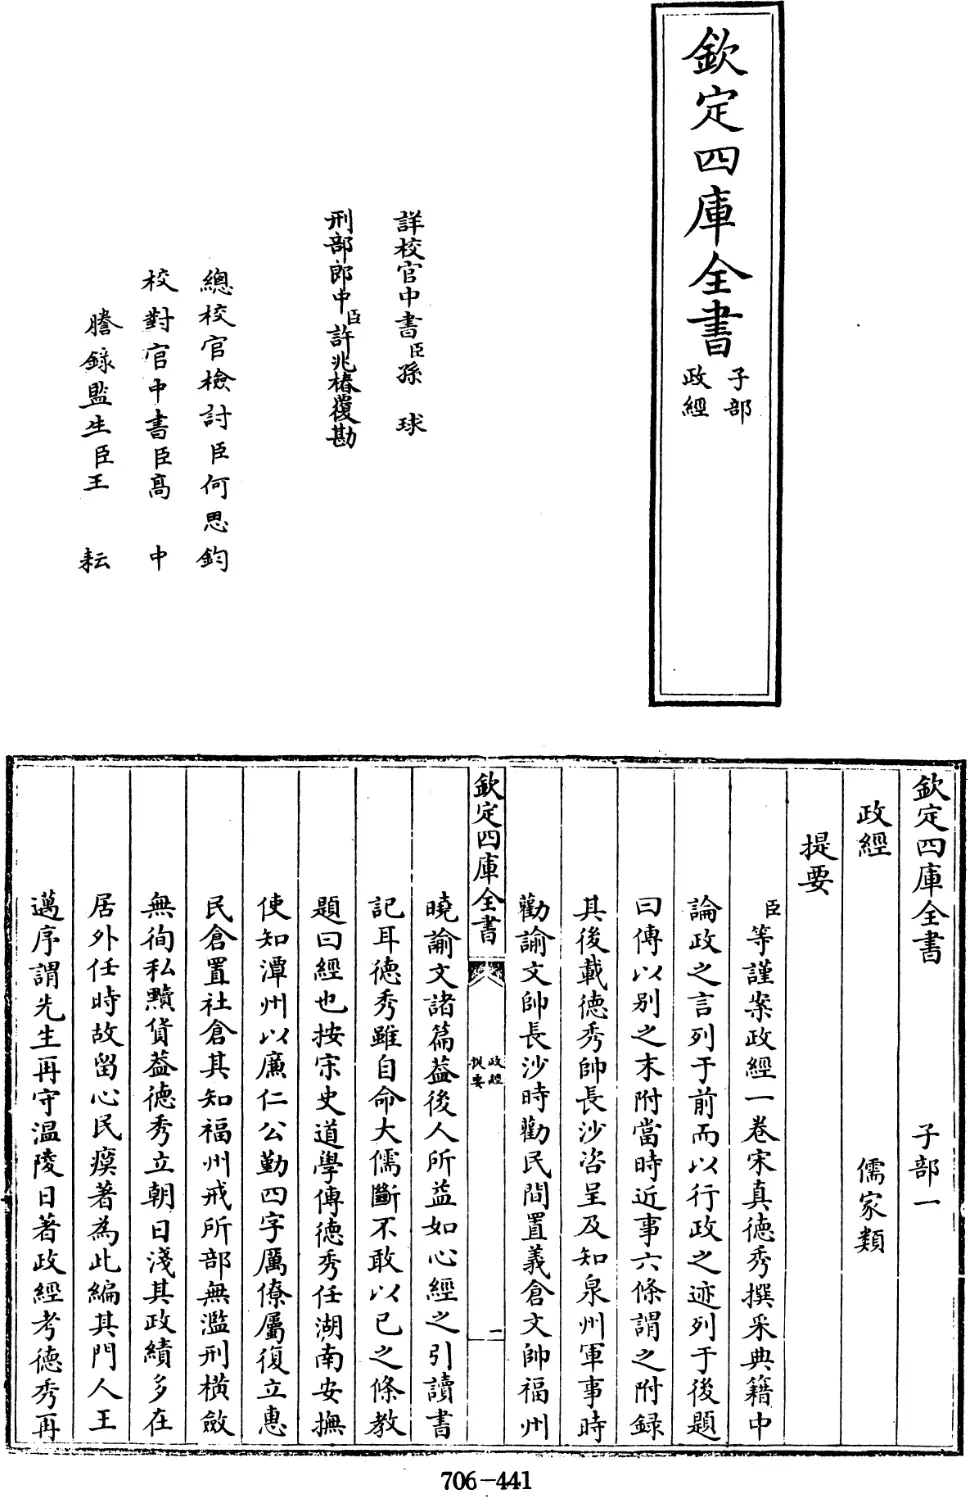 欽定四庫全書
子部
政經
詳校官中書臣孫球
刑部郎中臣許兆椿覆勘
總校官檢討臣何思鈞
校對官中書臣高中
謄錄監生臣王耘
欽定四庫全書 子部一
政經 儒家類
提要
臣等謹案政經一卷宋真德秀撰采典籍中
論政之言列于前而以行政之迹列于後題
曰傳以别之末附當時近事六條謂之附録
其後載德秀帥長沙咨呈及知泉州軍事時
勸諭文帥長沙時勸民間置義倉文帥福州
欽定四庫全書
政經
提要
一
曉諭文諸篇葢後人所益如心經之引讀書
記耳德秀雖自命大儒斷不敢以已之條教
題曰經也按宋史道學傳德秀任湖南安撫
使知潭州以廉仁公勤四字厲僚屬復立惠
民倉置社倉其知福州戒所部無濫刑橫斂
無徇私黷貨葢德秀立朝日淺其政績多在
居外任時故留心民瘼著為此編其門人王
邁序謂先生再守温陵日著政經考德秀再
706-441